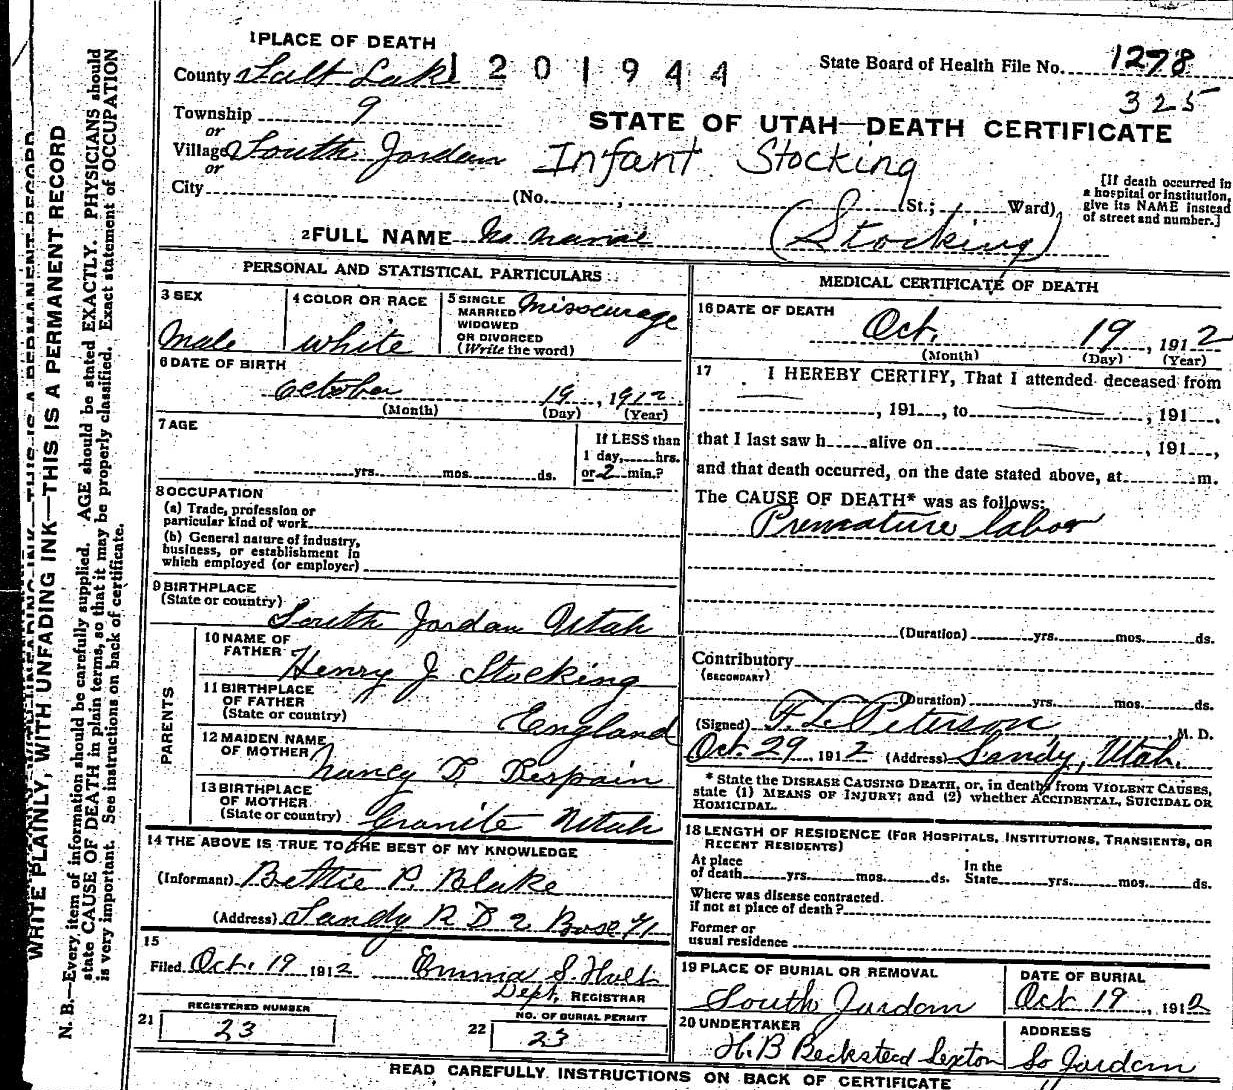 1 PLACE OF DEATH
County Salt Lake
1201944
State Board of Health File No. 1278
325
Township 9
or
Village South Jordan
or
City
STATE OF UTAH—DEATH CERTIFICATE
Infant Stocking
(No. , St.; Ward)
[If death occurred in a hospital or institution, give its NAME instead of street and number.]
2 FULL NAME No name (Stocking)
PERSONAL AND STATISTICAL PARTICULARS
3 SEX
Male
4 COLOR OR RACE
white
5 SINGLE
MARRIED
WIDOWED
OR DIVORCED
(Write the word)
Misscurage
6 DATE OF BIRTH
October 19, 1912
(Month) (Day) (Year)
7 AGE
yrs. mos. ds.
If LESS than
1 day, hrs.
or 2 min.?
8 OCCUPATION
(a) Trade, profession or
particular kind of work
(b) General nature of industry,
business, or establishment in
which employed (or employer)
9 BIRTHPLACE
(State or country)
South Jordan Utah
PARENTS
10 NAME OF
FATHER
Henry J Stocking
11 BIRTHPLACE
OF FATHER
(State or country)
England
12 MAIDEN NAME
OF MOTHER
Nancy D. Despain
13 BIRTHPLACE
OF MOTHER
(State or country)
Granite Utah
14 THE ABOVE IS TRUE TO THE BEST OF MY KNOWLEDGE
(Informant) Bettie P. Blake
(Address) Sandy R D 2 Box 41
15
Filed Oct. 19 1912 Emma S. Holt
Dept. REGISTRAR
21
REGISTERED NUMBER
23
22
NO. OF BURIAL PERMIT
23
MEDICAL CERTIFICATE OF DEATH
16 DATE OF DEATH
Oct. 19, 1912
(Month) (Day) (Year)
17 I HEREBY CERTIFY, That I attended deceased from
, 191 , to , 191 .
that I last saw h alive on , 191 ,
and that death occurred, on the date stated above, at m.
The CAUSE OF DEATH* was as follows:
Premature labor
(Duration) yrs. mos. ds.
Contributory
(SECONDARY)
(Duration) yrs. mos. ds.
(Signed) F. L. Peterson, M. D.
Oct. 29 1912 (Address) Sandy, Utah.
* State the DISEASE CAUSING DEATH, or, in deaths from VIOLENT CAUSES,
state (1) MEANS OF INJURY; and (2) whether ACCIDENTAL, SUICIDAL OR
HOMICIDAL.
18 LENGTH OF RESIDENCE (FOR HOSPITALS, INSTITUTIONS, TRANSIENTS, OR
RECENT RESIDENTS)
At place
of death yrs. mos. ds.
In the
State yrs. mos. ds.
Where was disease contracted.
if not at place of death?
Former or
usual residence
19 PLACE OF BURIAL OR REMOVAL
South Jordan
DATE OF BURIAL
Oct 19, 1912
20 UNDERTAKER
H. B Beckstead Sexton
ADDRESS
So Jordan
READ CAREFULLY INSTRUCTIONS ON BACK OF CERTIFICATE
WRITE PLAINLY, WITH UNFADING INK—THIS IS A PERMANENT RECORD
N. B.—Every item of information should be carefully supplied. AGE should be stated EXACTLY. PHYSICIANS should
state CAUSE OF DEATH in plain terms, so that it may be properly classified. Exact statement of OCCUPATION
is very important. See instructions on back of certificate.